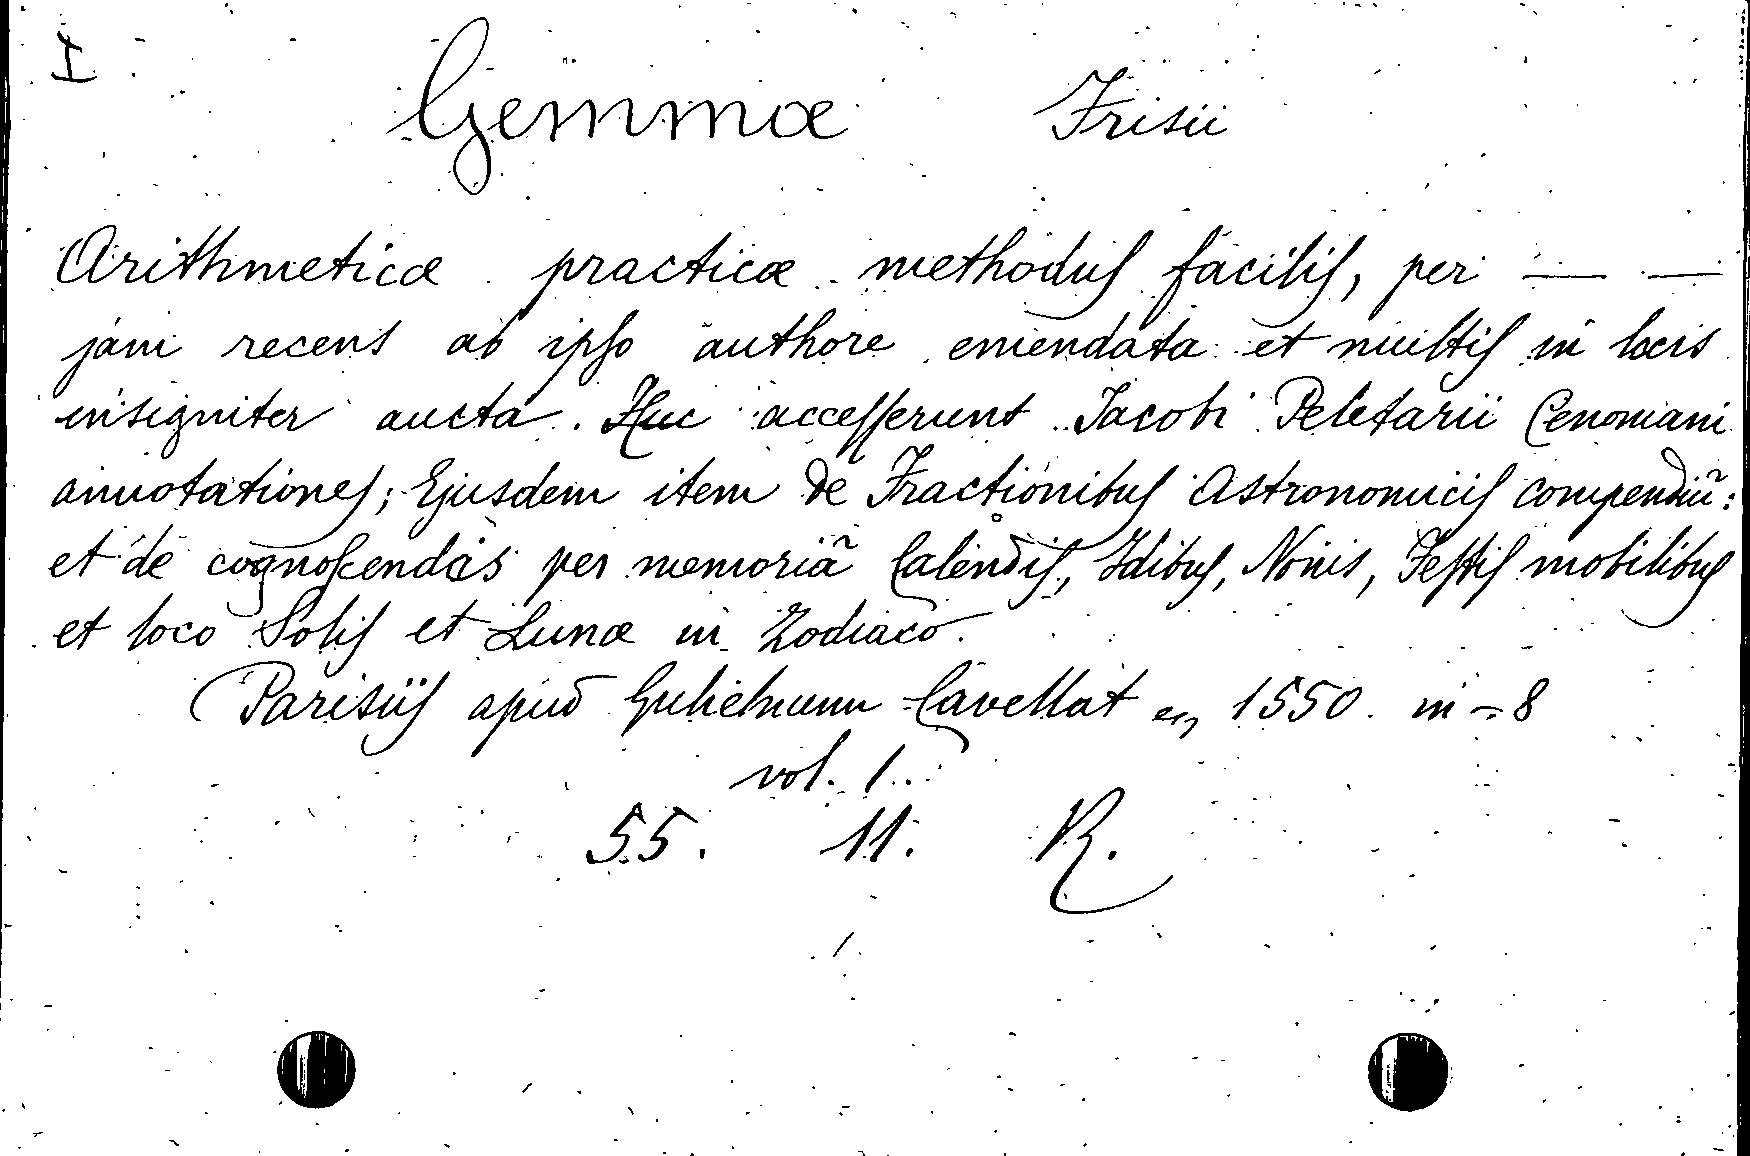 I
Gemmæ Frisii
Arithmeticæ practicæ methodus facilis, per — —
jam recens ab ipso authore emendata et multis in locis
insigniter aucta. Huc accesserunt Jacobi Peletarii Cenomani
annotationes; Ejusdem item de Fractionibus Astronomicis compendiũ:
et de cognoscendis per memoriã Calendis, Idibus, Nonis, Festis mobilibus
et loco Solis et Lunæ in Zodiaco.
Parisiis apud Gulielmum Cavellat en 1550. in = 8
vol. 1.
55. 11. R.